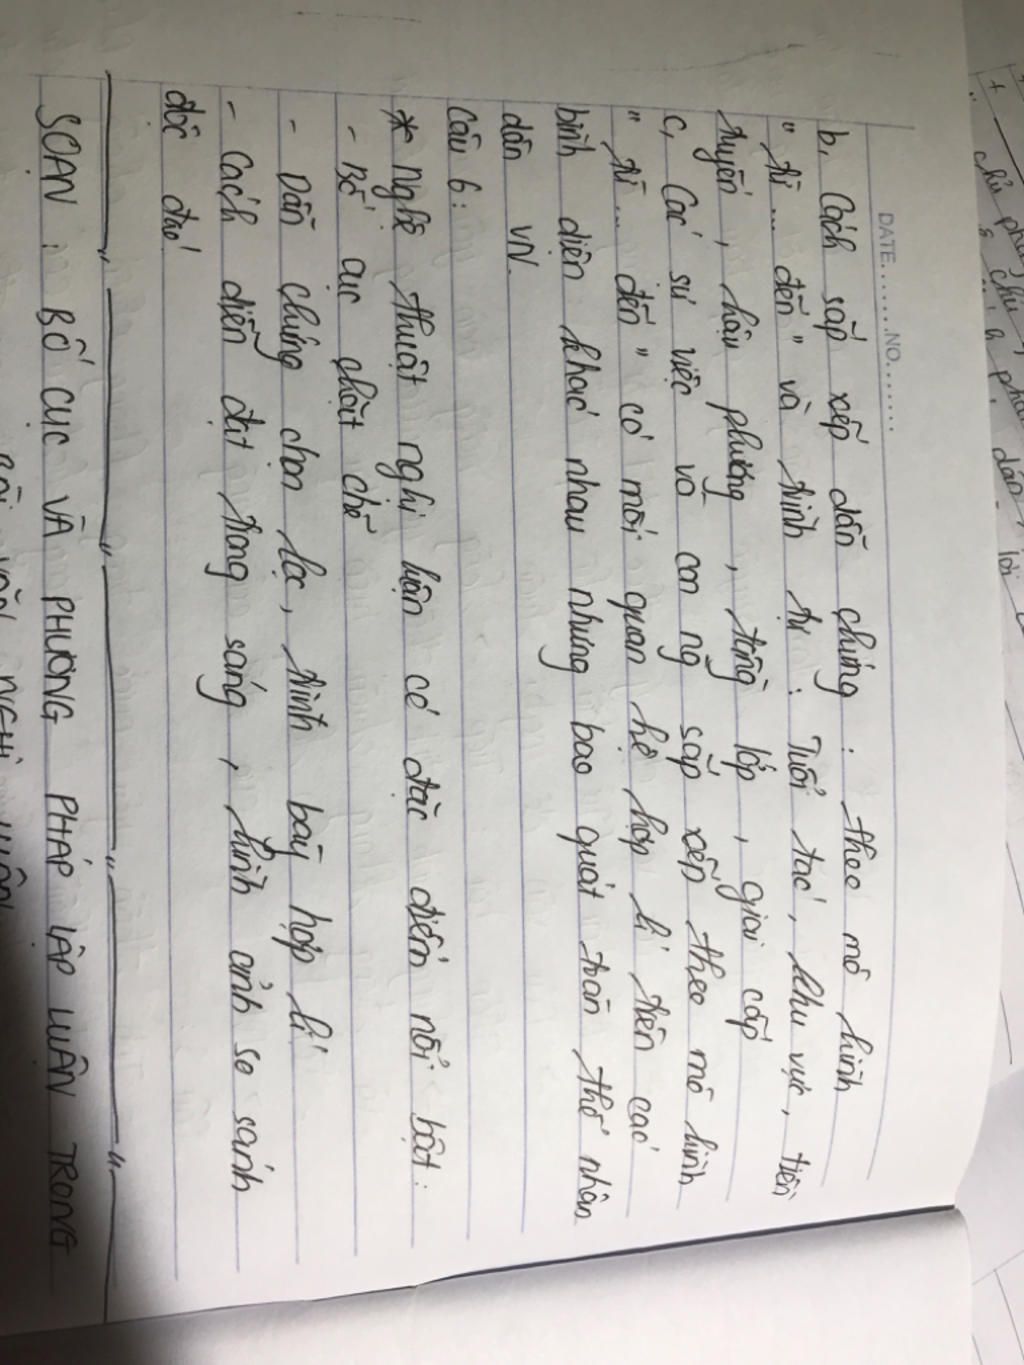 DATE.......NO.......
b, Cách sắp xếp dẫn chứng : theo mô hình
" từ... đến " và trình tự : Tuổi tác, khu vực, tiền
tuyến, hậu phương, từng lớp, giai cấp
c, Các sự việc và con ng sắp xếp theo mô hình
" từ... đến " có mối quan hệ hợp lí trên các
bình diện khác nhau nhưng bao quát toàn thể nhân
dân VN.
Câu 6 :
* Nghệ thuật nghị luận có đặc điểm nổi bật :
- Bố cục chặt chẽ
- Dẫn chứng chọn lọc, trình bày hợp lí
- Cách diễn đạt trong sáng, hình ảnh so sánh
độc đáo.
SOẠN : BỐ CỤC VÀ PHƯƠNG PHÁP LẬP LUẬN TRONG
BÀI VĂN NGHỊ LUẬN